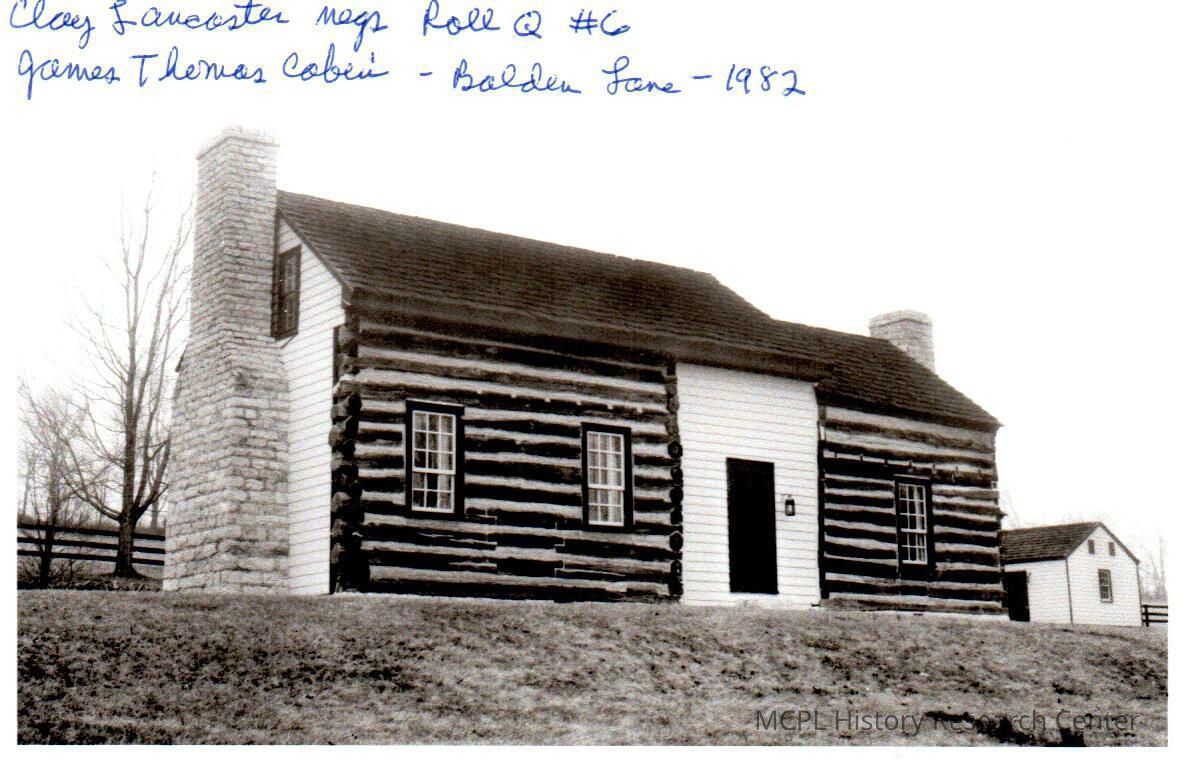 Clay Lancaster negs Roll Q #6
James Thomas Cabin - Balden Lane - 1982
MCPL History Research Center